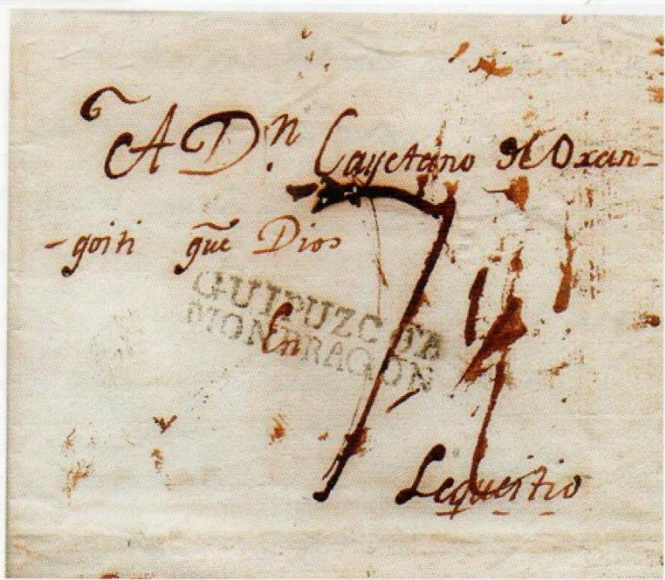 A D.n Cayetano de Oxan-
-goiti gue Dios
GUIPUZCOA
En
MONDRAGON
7
Lequeitio